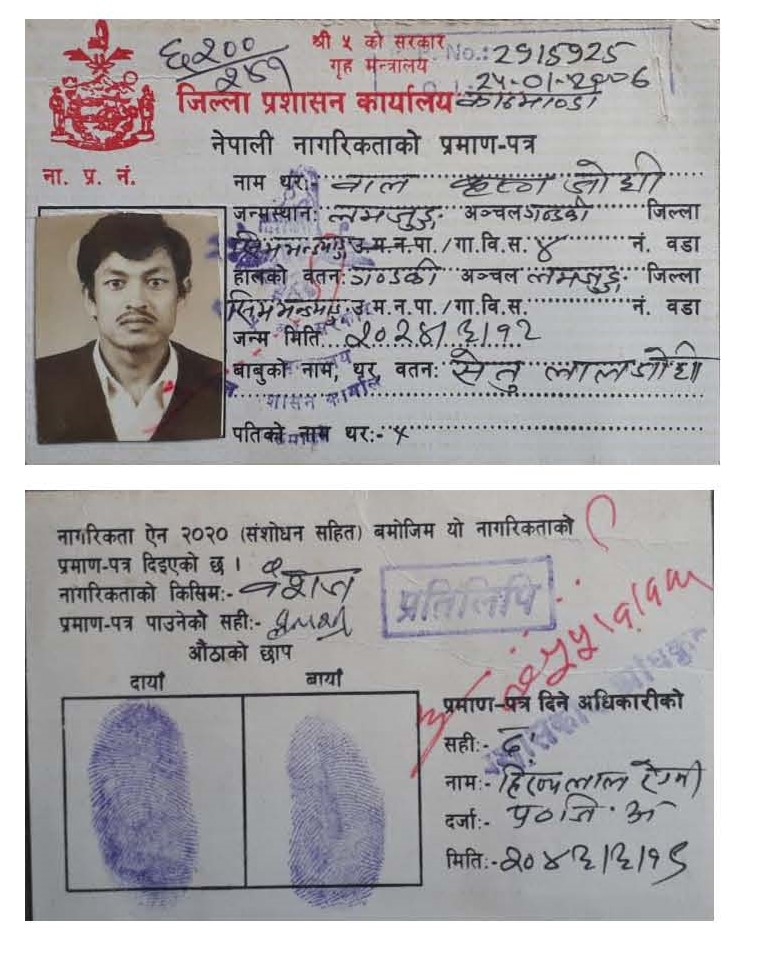 ६२००
२४१
श्री ५ को सरकार
गृह मन्त्रालय
No.: 2915925
24-01-2006
जिल्ला प्रशासन कार्यालय काठमाण्डौ
नेपाली नागरिकताको प्रमाण-पत्र
ना. प्र. नं.
नाम थर:- बाल कृष्ण जोशी
जन्मस्थान: लमजुङ्ग अञ्चल गण्डकी जिल्ला
उ.म.न.पा./गा.वि.स. ४ नं. वडा
हालको वतन: गण्डकी अञ्चल लमजुङ्ग जिल्ला
उ.म.न.पा./गा.वि.स. नं. वडा
जन्म मिति... २०२४/६/१२
बाबुको नाम, थर, वतन: सेतु लाल जोशी
शासन कार्याल
पतिको नाम थर:- x
नागरिकता ऐन २०२० (संशोधन सहित) बमोजिम यो नागरिकताको
प्रमाण-पत्र दिइएको छ ।
नागरिकताको किसिम:- वंशज
प्रमाण-पत्र पाउनेको सही:-
प्रतिलिपि
औंठाको छाप
दायाँ बायाँ
प्रमाण-पत्र दिने अधिकारीको
सही:- द.
नाम:- हिरण्य लाल रेग्मी
दर्जा:- प्र० जि. अ
मिति:- २०४६/६/१९